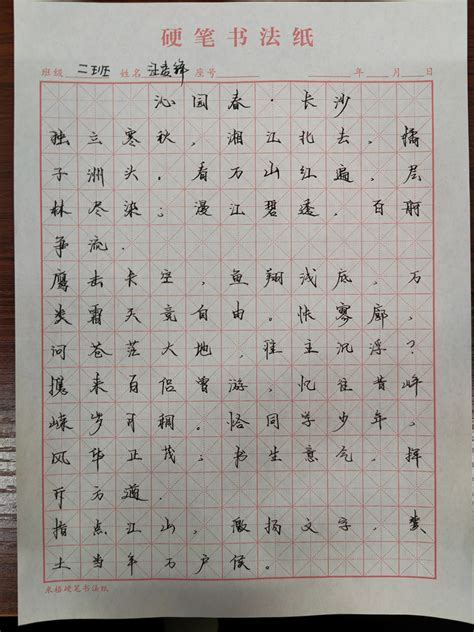 硬笔书法纸
班级 二班 姓名 汪 锋 座号 年 月 日
沁园春·长沙
独立寒秋，湘江北去，橘
子洲头。看万山红遍，层
林尽染；漫江碧透，百舸
争流.
鹰击长空，鱼翔浅底，万
类霜天竞自由。怅寥廓，
问苍茫大地，谁主沉浮？
携来百侣曾游，忆往昔峥
嵘岁月稠。恰同学少年，
风华正茂；书生意气，挥
斥方遒.
指点江山，激扬文字，粪
土当年万户侯。
米格硬笔书法纸